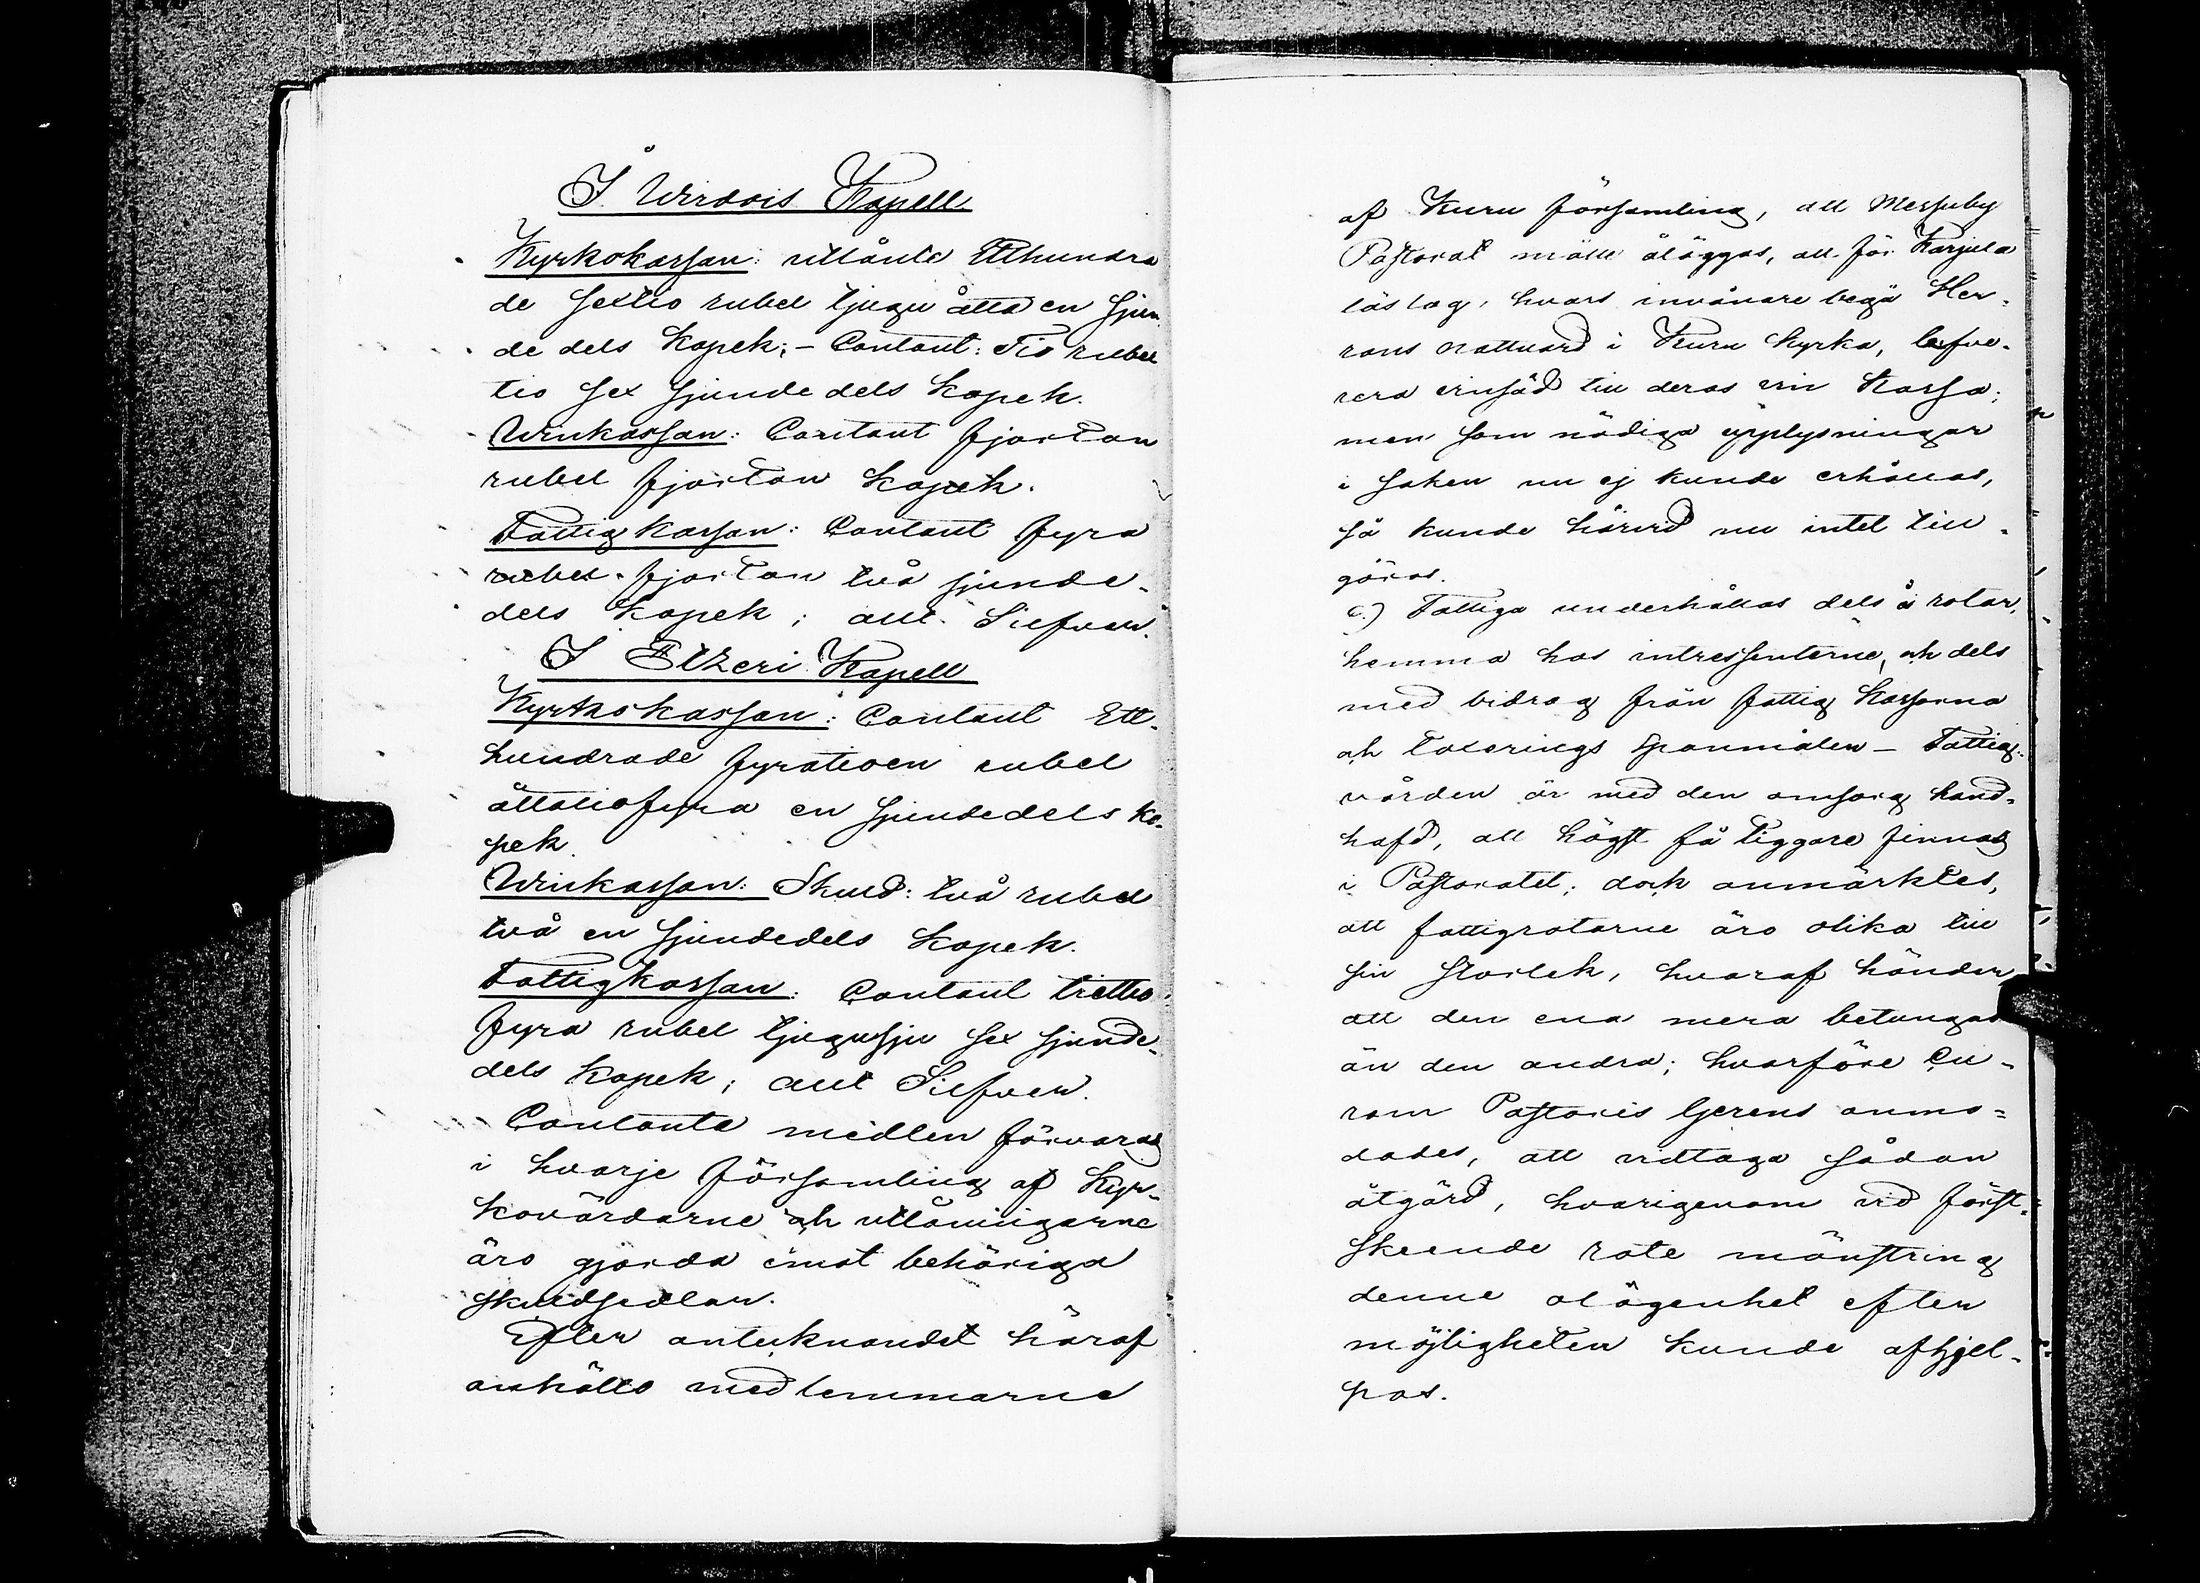 I Wirdois Kapell
Kyrkokassan: utlånte Etthundra
de sextio rubel tjugu åtta en sjun
de dels Kopek; – Contant: Tio rubel
tio sex sjunde dels Kopek.
Winkassan: Contant fjorton
rubel fjorton Kopek.
Fattig Kassan: Contant fyra
rubel fjorton två sjunde-
dels Kopek; allt Silfver.
I Etzeri Kapell
Kyrkokassan: Contant Ett-
hundrade fyratioen rubel
åttatiofyra en sjundedels Ko-
pek.
Winkassan: Skuld: två rubel
två en sjundedels Kopek.
Fattigkassan: Contant trettio
fyra rubel tjugusju sex sjunde-
dels Kopek; allt Silfver.
Contanta medlen förvaras
i hvarje församling af Kyr-
kovärdarne och utlåningarne
äro gjorda emot behöriga
skuldsedlar.
Efter antecknandet häraf
anhöllo medlemmarne
af Kuru församling, att Messuby
Pastorat måtte åläggas, att för Karjula
läslag, hvars invånare begå Her-
rans nattvard i Kuru Kyrka, lefve-
rera vinsäd till deras vin Kassa;
men som nödiga upplysningar
i saken nu ej kunde erhållas,
så kunde härvid nu intet till-
göras.
c.) Fattiga underhållas dels å rotar,
hemma hos intressenterne, och dels
med bidrag från fattig Kassorna
och Taxerings Spanmålen – Fattig-
vården är med den omsorg hand-
hafd, att högst få tiggare finnas
i Pastoratet; dock anmärktes,
att fattigrotarne äro olika till
sin storlek, hvaraf händer,
att den ena mera betungas
än den andra; hvarföre Cu-
ram Pastoris Gerens anmo-
dades, att vidtaga sådan
åtgärd, hvarigenom vid först-
skeende rote mönstring
denne olägenhet efter
möjligheten kunde afhjel-
pas.